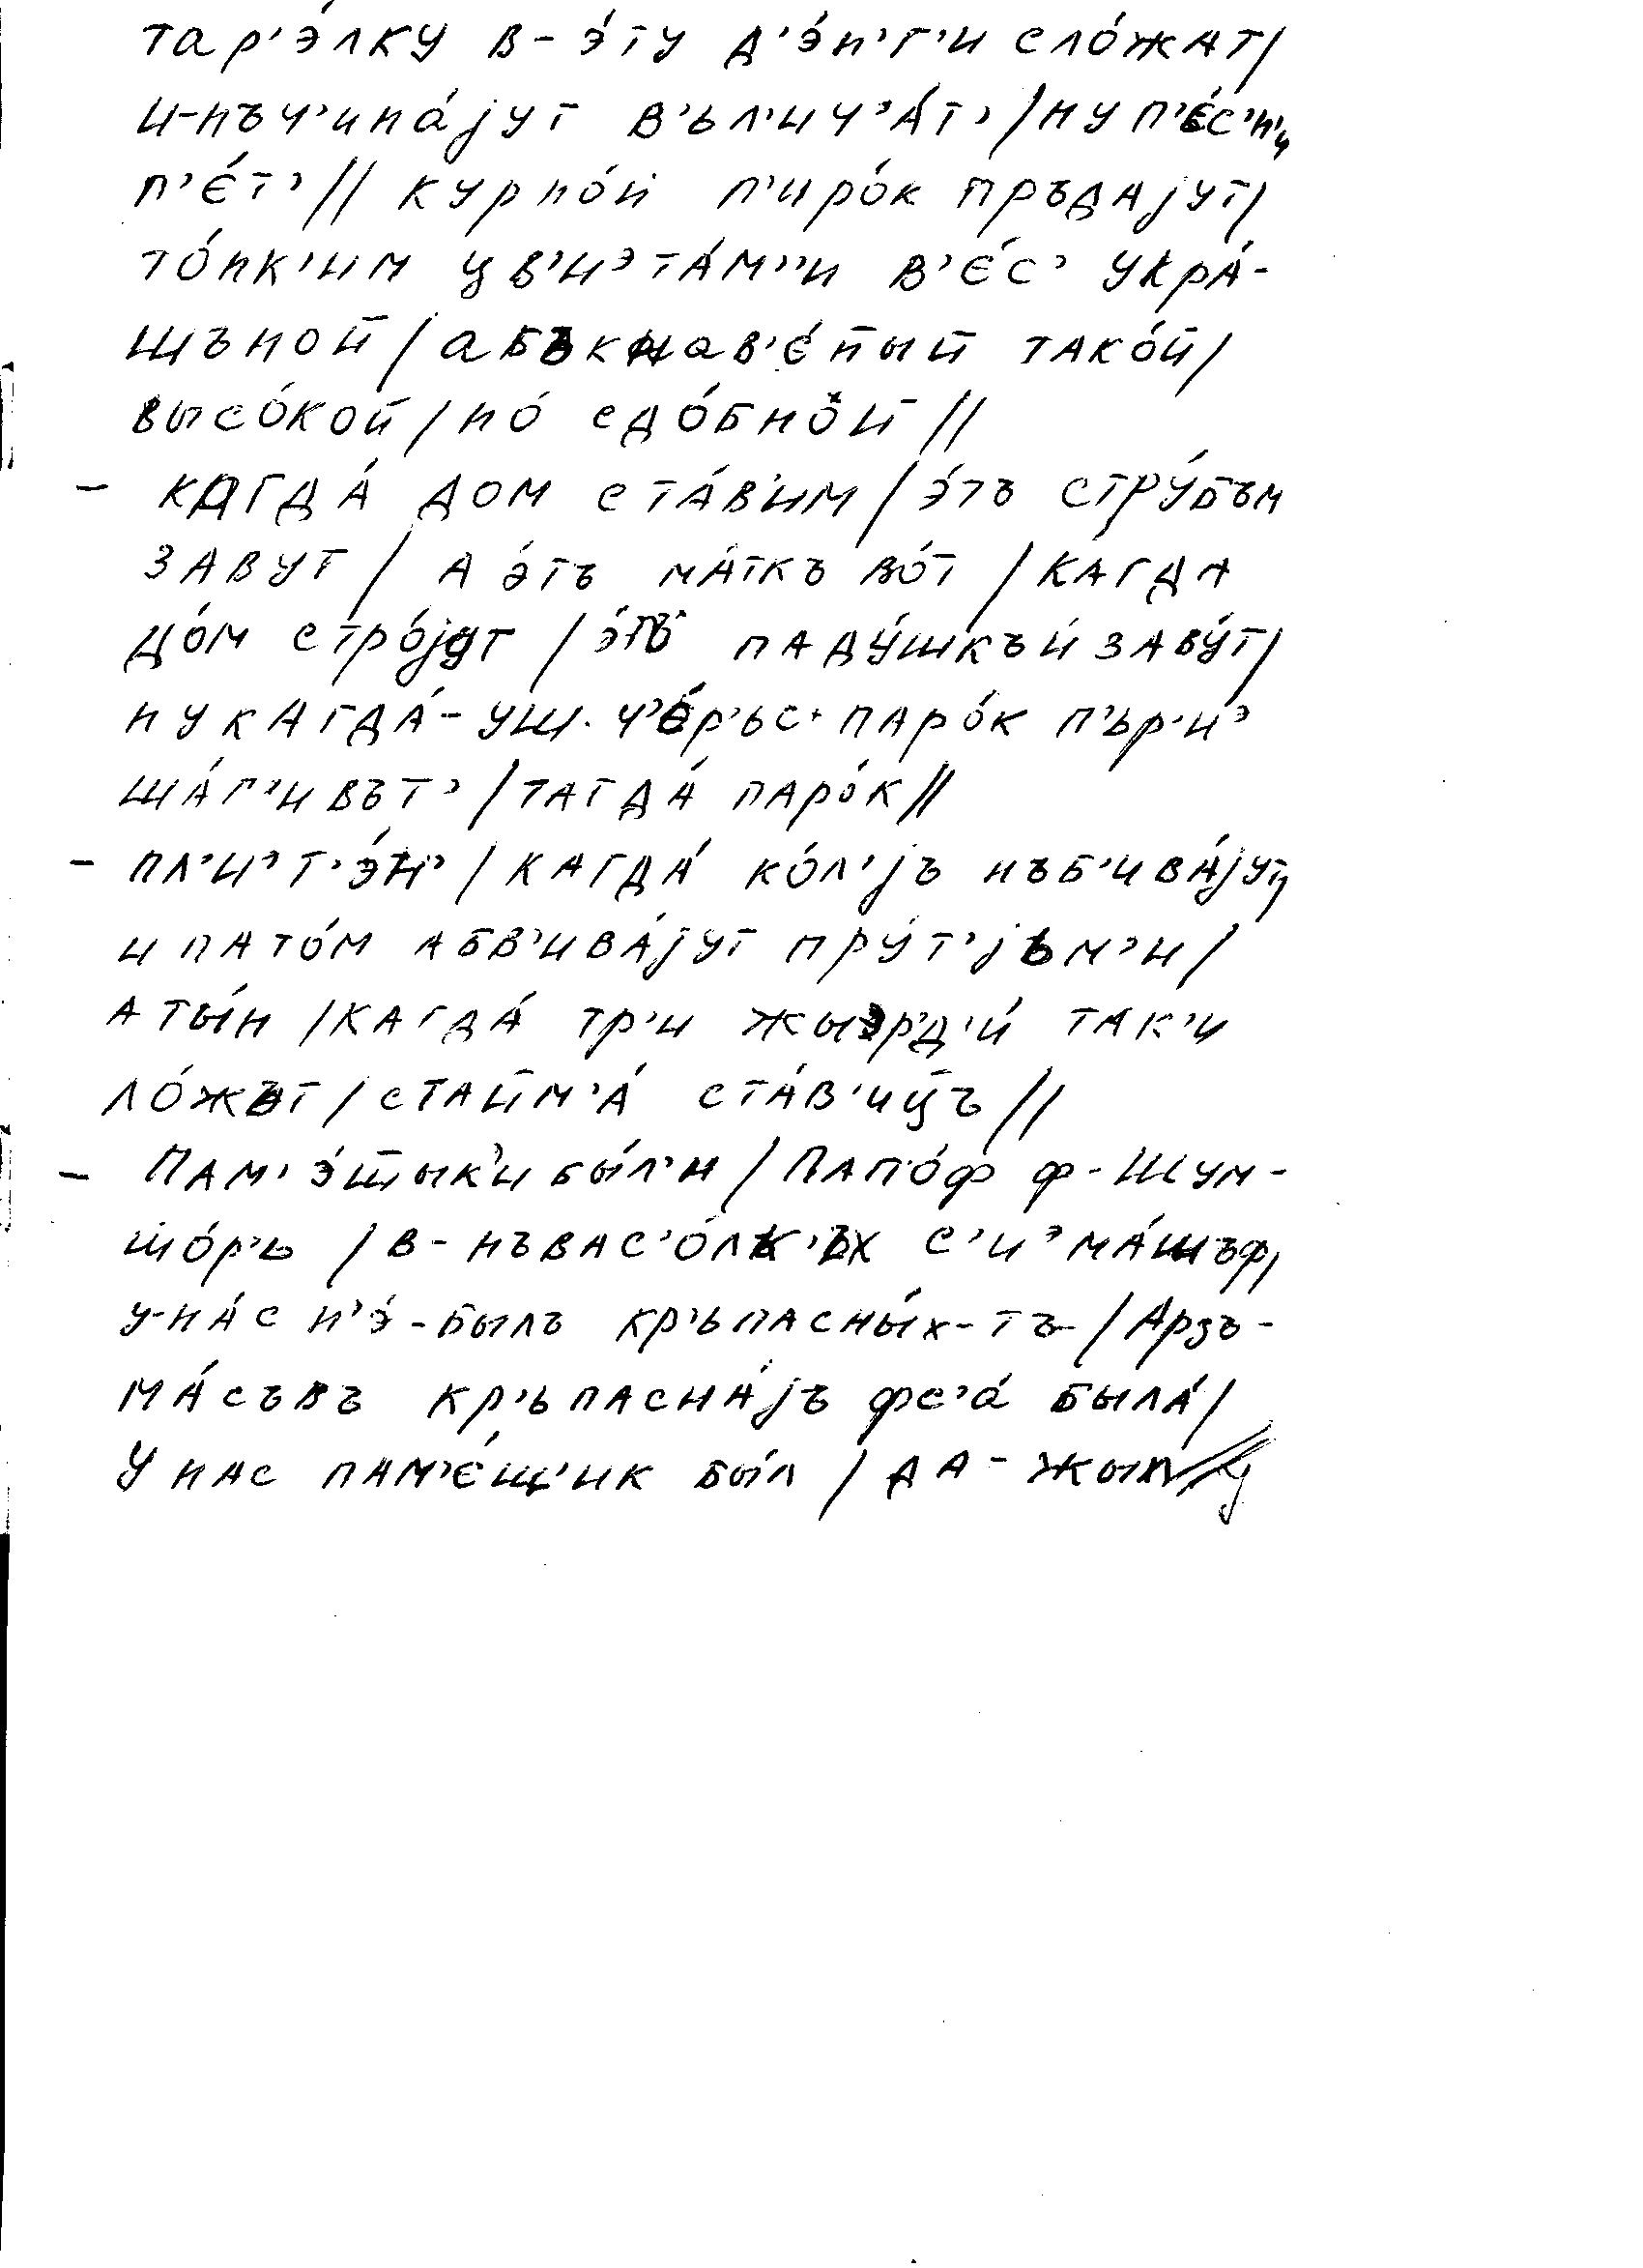 тар'э́лку в-э́ту д'э́н'г'и сло́жат/
и-нъч'ина́jут в'ьл'ич'а́т'/ну п'е́с'н'и
п'е́т'// курно́й п'иро́к пръдаjут/
то́нк'им цв'иᵊта́м''и в'е́с' укра́-
шъной/абъкнав'е́ный тако́й/
высо́кой/но́ сдо́бной//
- кагда́ дом ста́в'им/э́тъ стру́бъм
завут/ а э́тъ ма́ткъ во́т/кагда
до́м стро́jут/э́тъ паду́шкъй заву́т/
ну кагда́-уш ч'е́р'ьс паро́к п'ьр'иᵊ
ша́г'ивът'/тагда́ паро́к//
- пл'иᵊт'э́н'/кагда́ ко́л'jъ нъб'ива́jут,
и пато́м абв'ива́jут пру́т'jьм'и/
а ты́н/кагда́ тр'и жыᵊрд'и́ так'и
ло́жът/стайм'а́ ста́в'иц̄ъ//
- Пам'э́ш̄ык'и бы́л'и/Папо́ф ф-Шум-
шо́р'ь/в-нъвас'о́лк'ьх с'иᵊма́шъф,
у-на́с н'э́-былъ кр'ьпасны́х-тъ/Арзъ-
ма́съвъ кр'ьпасна́jъ фс'а́ была́/
У нас пам'е́щ'ик бы́л/да-жыл//